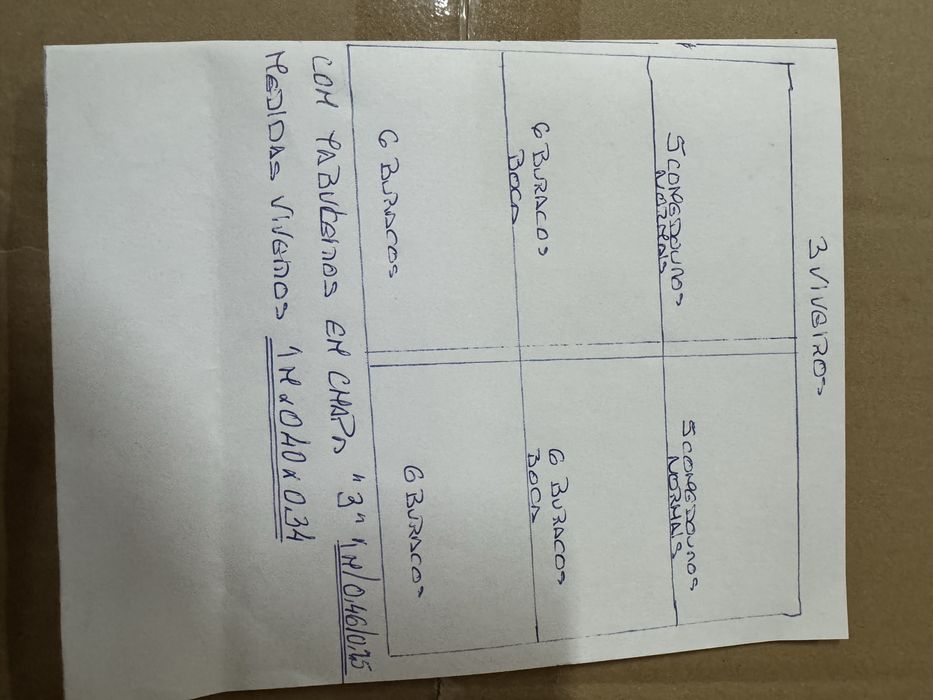 3 VIVEIROS
5 COMEDOUROS
NORMAIS
5 COMEDOUROS
NORMAIS
6 BURACOS
BOCA
6 BURACOS
BOCA
6 BURACOS
6 BURACOS
COM TABULEIROS EM CHAPA "3" 1M/0,40/0,25
MEDIDAS VIVEIROS 1M x 0.40 x 0.34